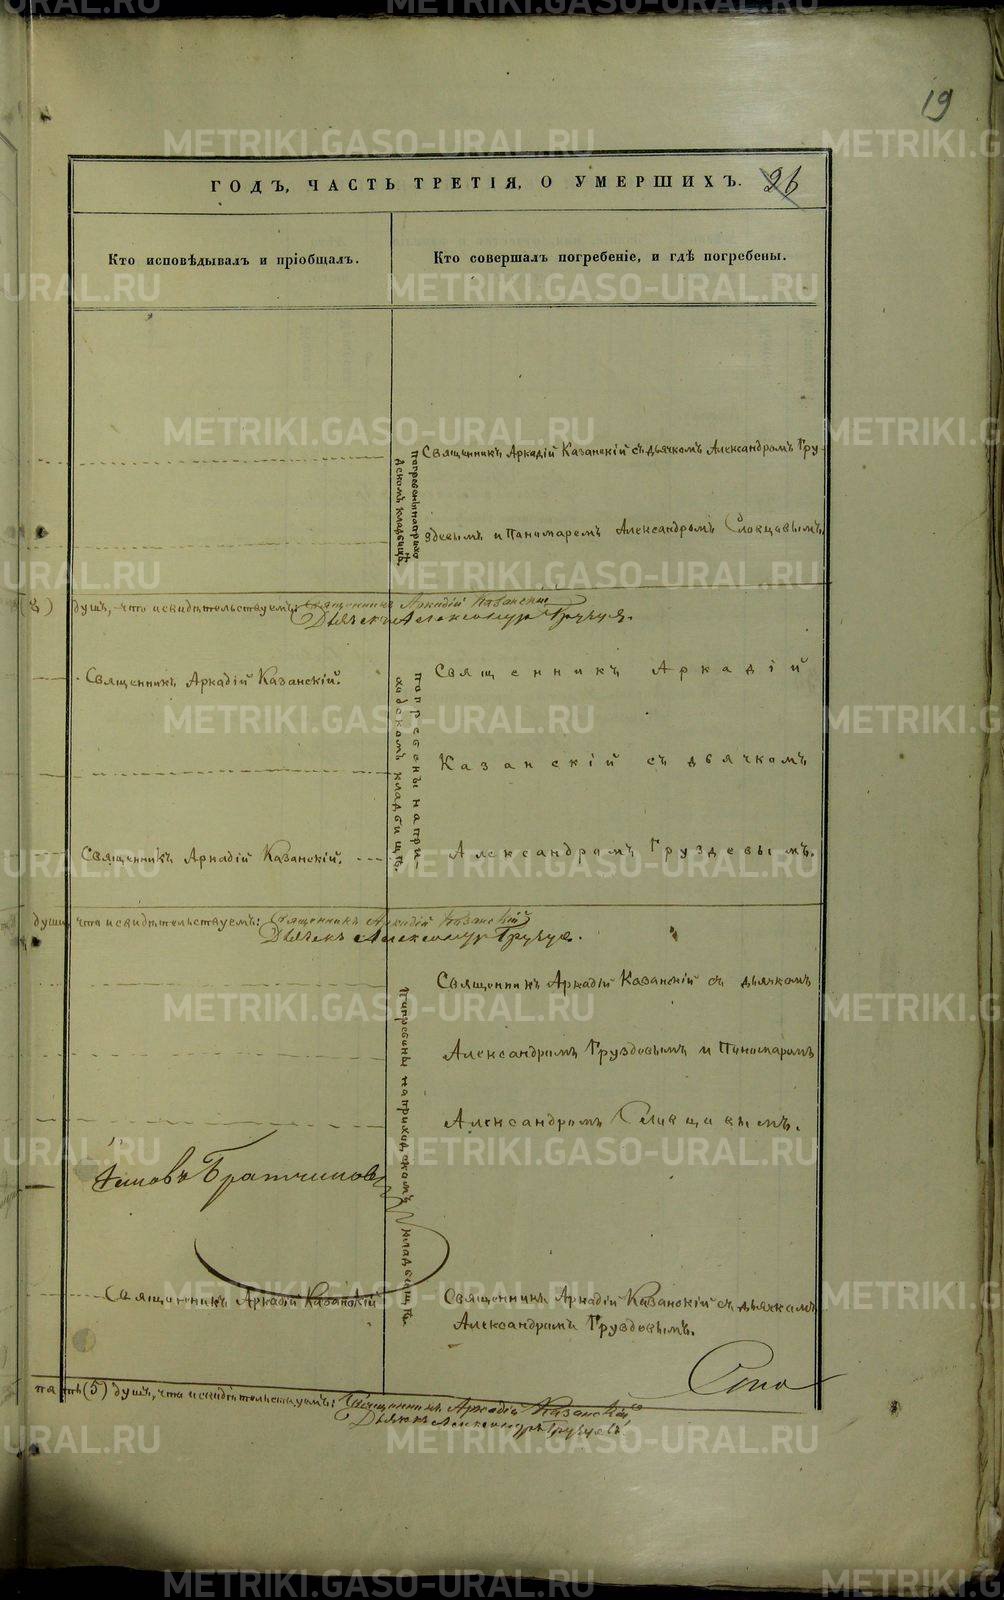 19
ГОДЪ, ЧАСТЬ ТРЕТІЯ, О УМЕРШИХЪ. 26
Кто исповѣдывалъ и пріобщалъ.
Кто совершалъ погребеніе, и гдѣ погребены.
Священникъ Аркадій Казанскій съ дьячкомъ Александромъ Гру-
здевымъ и Пономаремъ Александромъ Словцовымъ.
погребены на приход-
скомъ кладбищѣ.
душъ, что и свидѣтельствуемъ: Священникъ Аркадій Казанскій
Дьячекъ Александръ Груздев.
Священникъ Аркадій Казанскій.
Священникъ Аркадій
Казанскій съ дьячкомъ
Священникъ Аркадій Казанскій.
Александромъ Груздевымъ.
погребены на при-
ходскомъ кладбищѣ.
души, что и свидѣтельствуемъ: Священникъ Аркадій Казанскій
Дьячекъ Александръ Груздев.
Священникъ Аркадій Казанскій съ дьячкомъ
Александромъ Груздевымъ и Пономаремъ
Александромъ Словцовымъ.
погребены на приходскомъ кладбищѣ.
Братчиковъ
Священникъ Аркадій Казанскій
Священникъ Аркадій Казанскій съ дьячкомъ
Александромъ Груздевымъ.
пять (5) душъ, что и свидѣтельствуемъ: Священникъ Аркадій Казанскій
Дьячекъ Александръ Груздевъ
METRIKI.GASO-URAL.RU